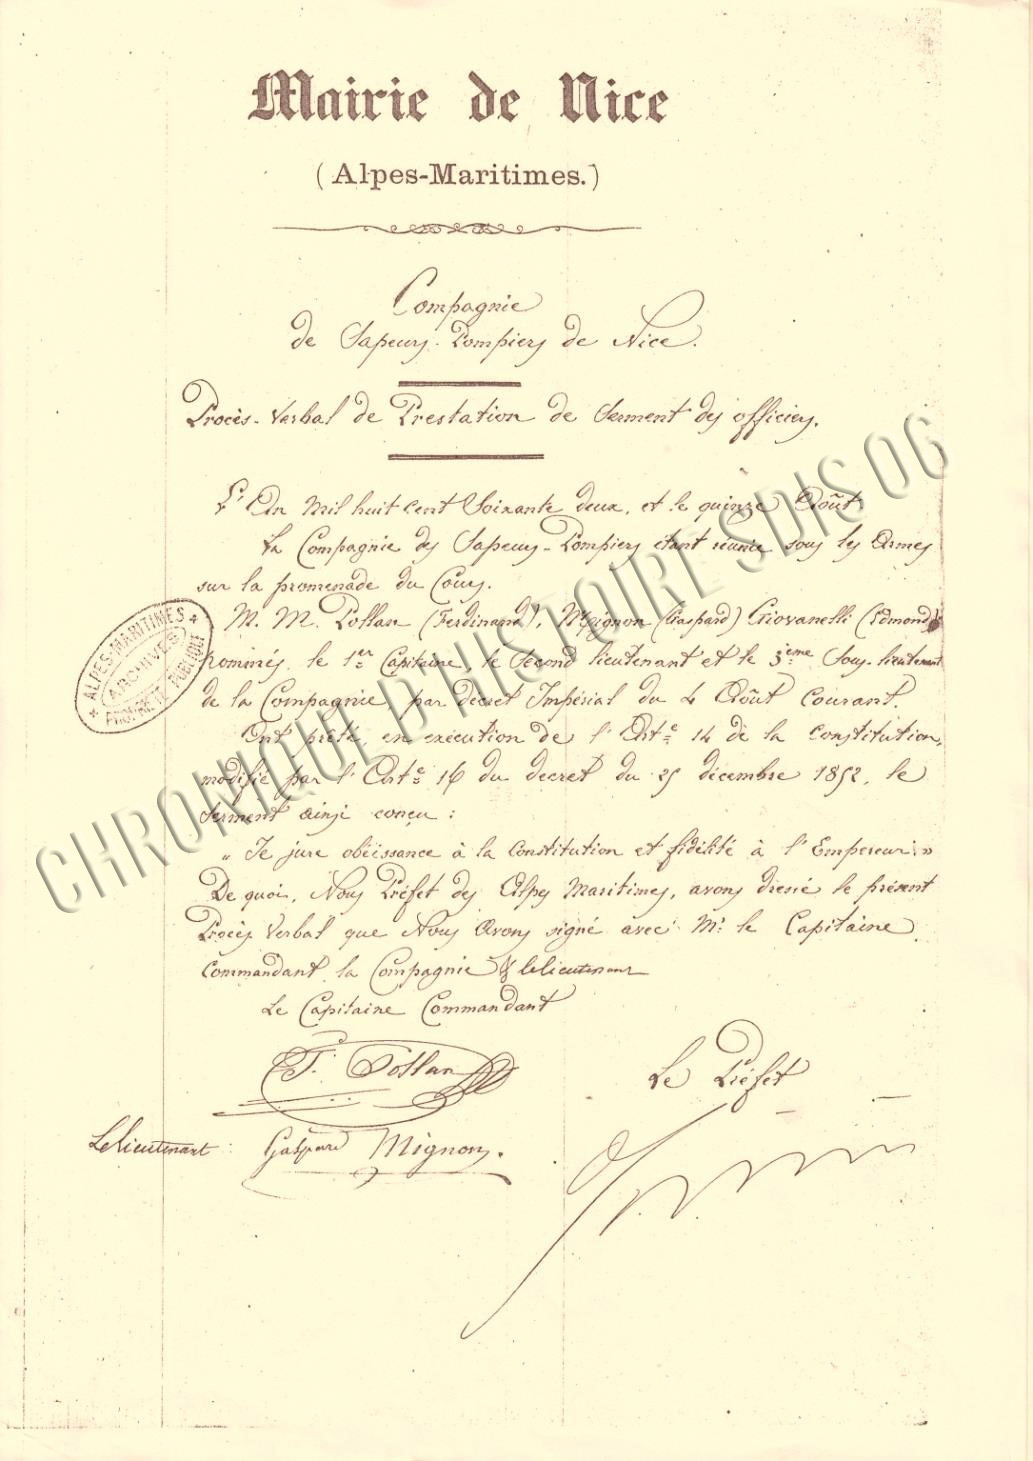 Mairie de Nice
(Alpes-Maritimes.)
Compagnie
de Sapeurs-Pompiers de Nice.
Procès-Verbal de Prestation de Serment des officiers.
L'An Mil huit Cent Soixante deux, et le quinze Août,
la Compagnie des Sapeurs-Pompiers étant réunie sous les Armes
sur la promenade du Cours.
M. M. (Ferdinand), Mignon (Gaspard) Giovanelli (Edmond)
nommés, le 1er Capitaine, le Second lieutenant et le 3ème Sous-lieutenant
de la Compagnie par décret Impérial du 4 Août Courant.
Ont prêté, en exécution de l'Arte 14 de la Constitution,
modifié par l'Arte 16 du décret du 25 décembre 1852, le
serment ainsi conçu :
" Je jure obéissance à la Constitution et fidélité à l'Empereur. "
De quoi, Nous Préfet des Alpes Maritimes, avons dressé le présent
Procès Verbal que Nous Avons signé avec Mr le Capitaine
Commandant la Compagnie & le lieutenant
Le Capitaine Commandant
F.
Le Préfet
Le lieutenant : Gaspard Mignon.
ALPES-MARITIMES
ARCHIVES
PROPRIÉTÉ PUBLIQUE
CHRONIQUE D'HISTOIRE SDIS 06